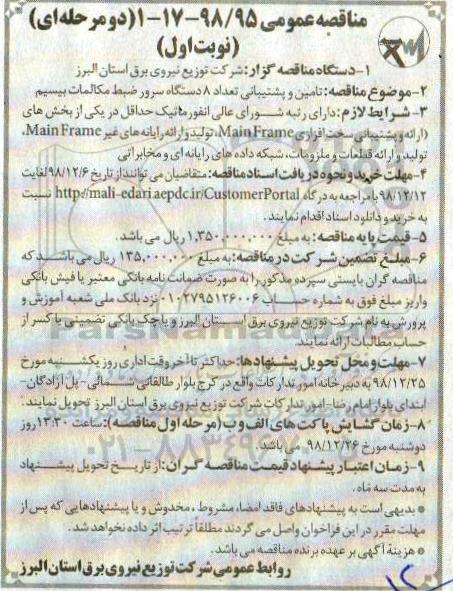 مناقصه عمومی ۹۸/۹۵-۱۷-۱ (دو مرحله ای)
(نوبت اول)
۱-دستگاه مناقصه گزار: شرکت توزیع نیروی برق استان البرز
۲-موضوع مناقصه: تامین و پشتیبانی تعداد ۸ دستگاه سرور ضبط مکالمات بیسیم
۳-شرایط لازم: دارای رتبه شورای عالی انفورماتیک حداقل در یکی از بخش های
(ارائه و پشتیبانی سخت افزاری Main Frame، تولید و ارائه رایانه های غیر Main Frame،
تولید و ارائه قطعات و ملزومات، شبکه داده های رایانه ای و مخابراتی
۴-مهلت خرید و نحوه دریافت اسناد مناقصه: متقاضیان می توانند از تاریخ ۹۸/۱۲/۶ لغایت
۹۸/۱۲/۱۲ با مراجعه به درگاه http://mali-edari.aepdc.ir/CustomerPortal نسبت
به خرید و دانلود اسناد اقدام نمایند.
۵-قیمت پایه مناقصه: به مبلغ ۱,۳۵۰,۰۰۰,۰۰۰ ریال می باشد.
۶-مبلغ تضمین شرکت در مناقصه: به مبلغ ۱۳۵,۰۰۰,۰۰۰ ریال می باشد که
مناقصه گران بایستی سپرده مذکور را به صورت ضمانت نامه بانکی معتبر یا فیش بانکی
واریز مبلغ فوق به شماره حساب ۰۱۰۲۷۹۵۱۲۶۰۰۶ نزد بانک ملی شعبه آموزش و
پرورش به نام شرکت توزیع نیروی برق استان البرز و یا چک بانکی تضمینی یا کسر از
حساب مطالبات ارائه نمایند.
۷-مهلت و محل تحویل پیشنهادها: حداکثر تا آخر وقت اداری روز یکشنبه مورخ
۹۸/۱۲/۲۵ به دبیرخانه امور تدارکات واقع در کرج بلوار طالقانی شمالی-پل آزادگان-
ابتدای بلوار امام رضا-امور تدارکات شرکت توزیع نیروی برق استان البرز تحویل نمایند.
۸-زمان گشایش پاکت های الف و ب (مرحله اول مناقصه): ساعت ۱۳:۳۰ روز
دوشنبه مورخ ۹۸/۱۲/۲۶ می باشد.
۹-زمان اعتبار پیشنهاد قیمت مناقصه گران: از تاریخ تحویل پیشنهاد
به مدت سه ماه.
* بدیهی است به پیشنهادهای فاقد امضاء مشروط، مخدوش و یا پیشنهادهایی که پس از
مهلت مقرر در این فراخوان واصل می گردند مطلقاً ترتیب اثر داده نخواهد شد.
* هزینه آگهی بر عهده برنده مناقصه می باشد.
روابط عمومی شرکت توزیع نیروی برق استان البرز